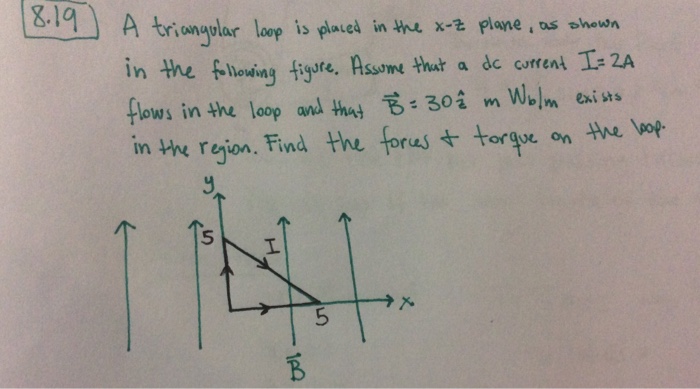 8.19 A triangular loop is placed in the x-z plane, as shown
in the following figure. Assume that a dc current I = 2A
flows in the loop and that B⃗ = 30 ẑ m Wb/m exists
in the region. Find the forces + torque on the loop.
y
5
I
x
5
B⃗